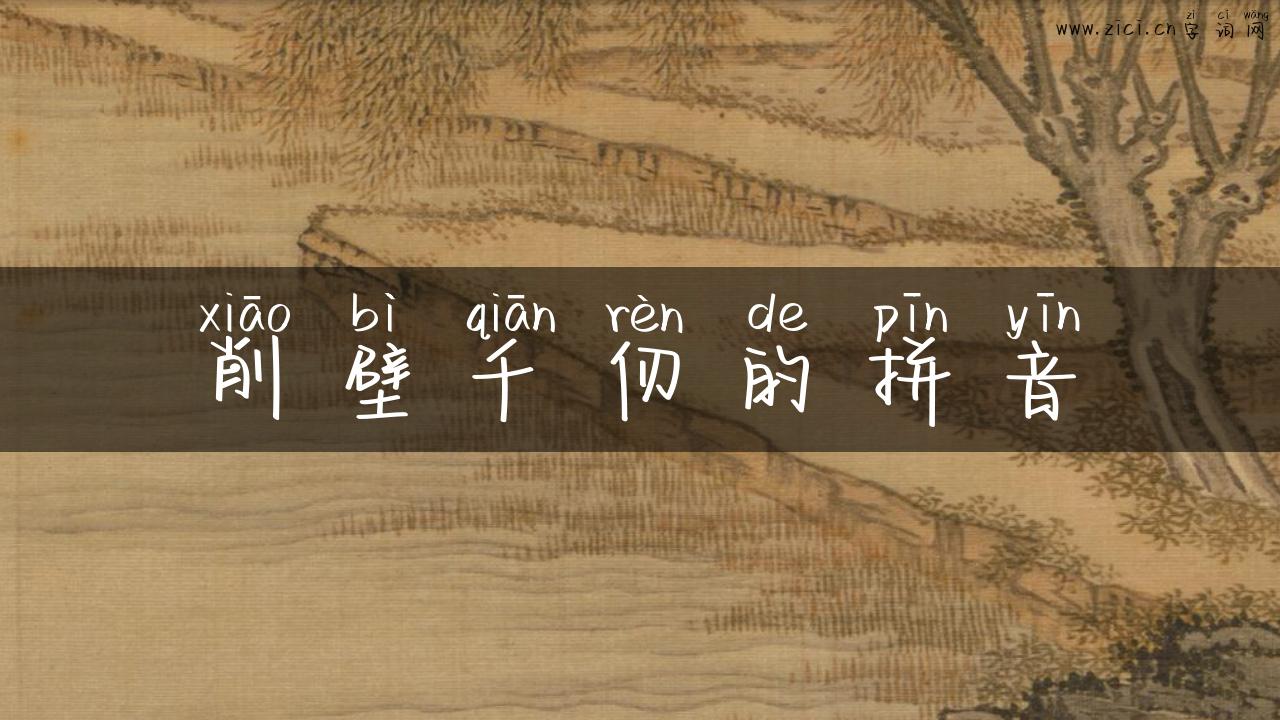 zì cí wǎng
www.zici.cn 字词网
xiāo bì qiān rèn de pīn yīn
削壁千仞的拼音